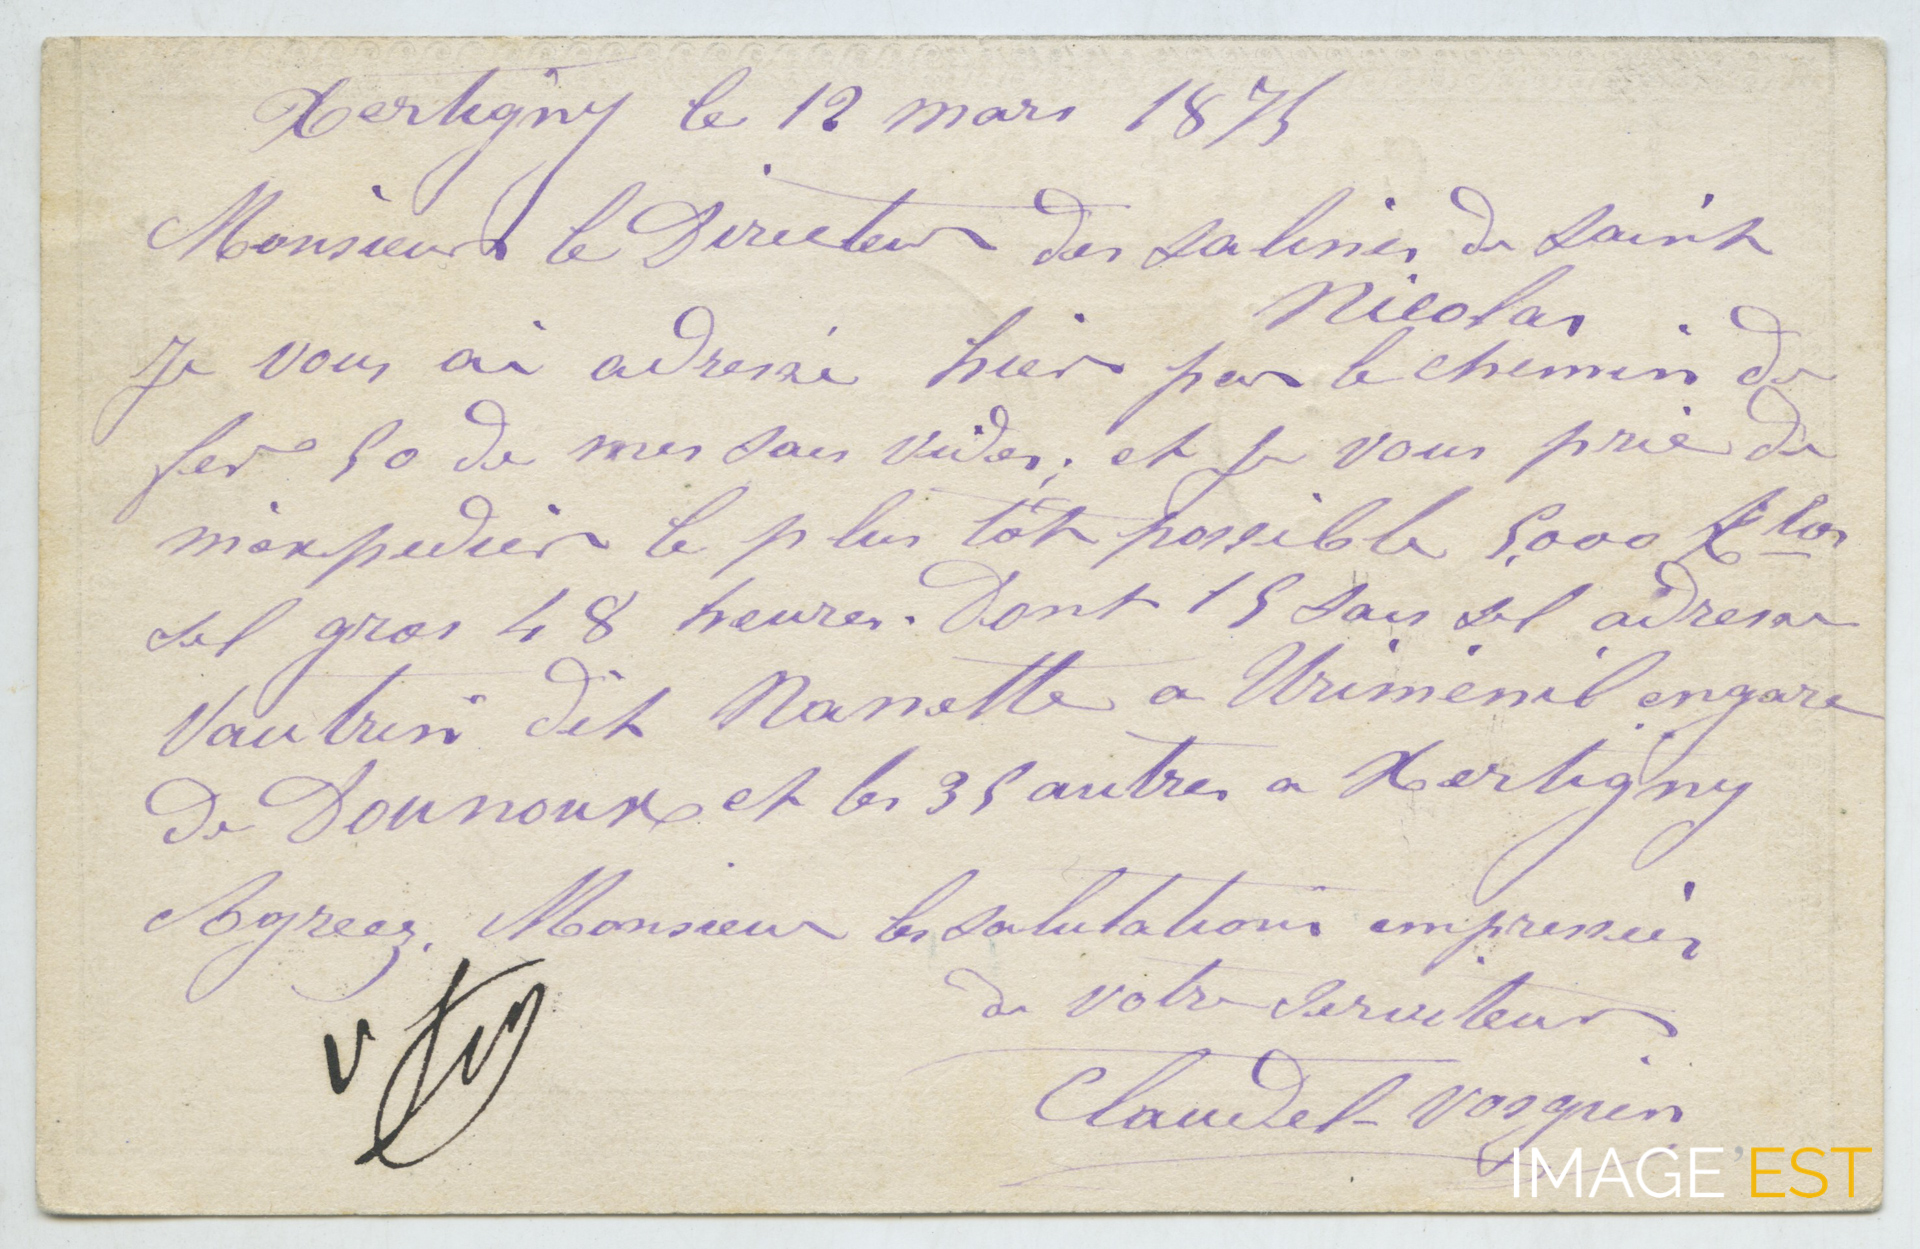 Xertigny le 12 mars 1875
Monsieur le Directeur des salines de saint
Nicolas
Je vous ai adressé hier par le chemin de
fer 50 de mes sacs vides, et je vous prie de
m'expedier le plus tôt possible 5,000 Kilos
sel gros 48 heures. Dont 15 sacs sel adresse
Vautrin dit Nanette a Uriménil en gare
de Dounoux et les 35 autres a Xertigny
Agreez, Monsieur les salutations empressées
de votre serviteur
Claudel-Vosgien
V
IMAGE'EST